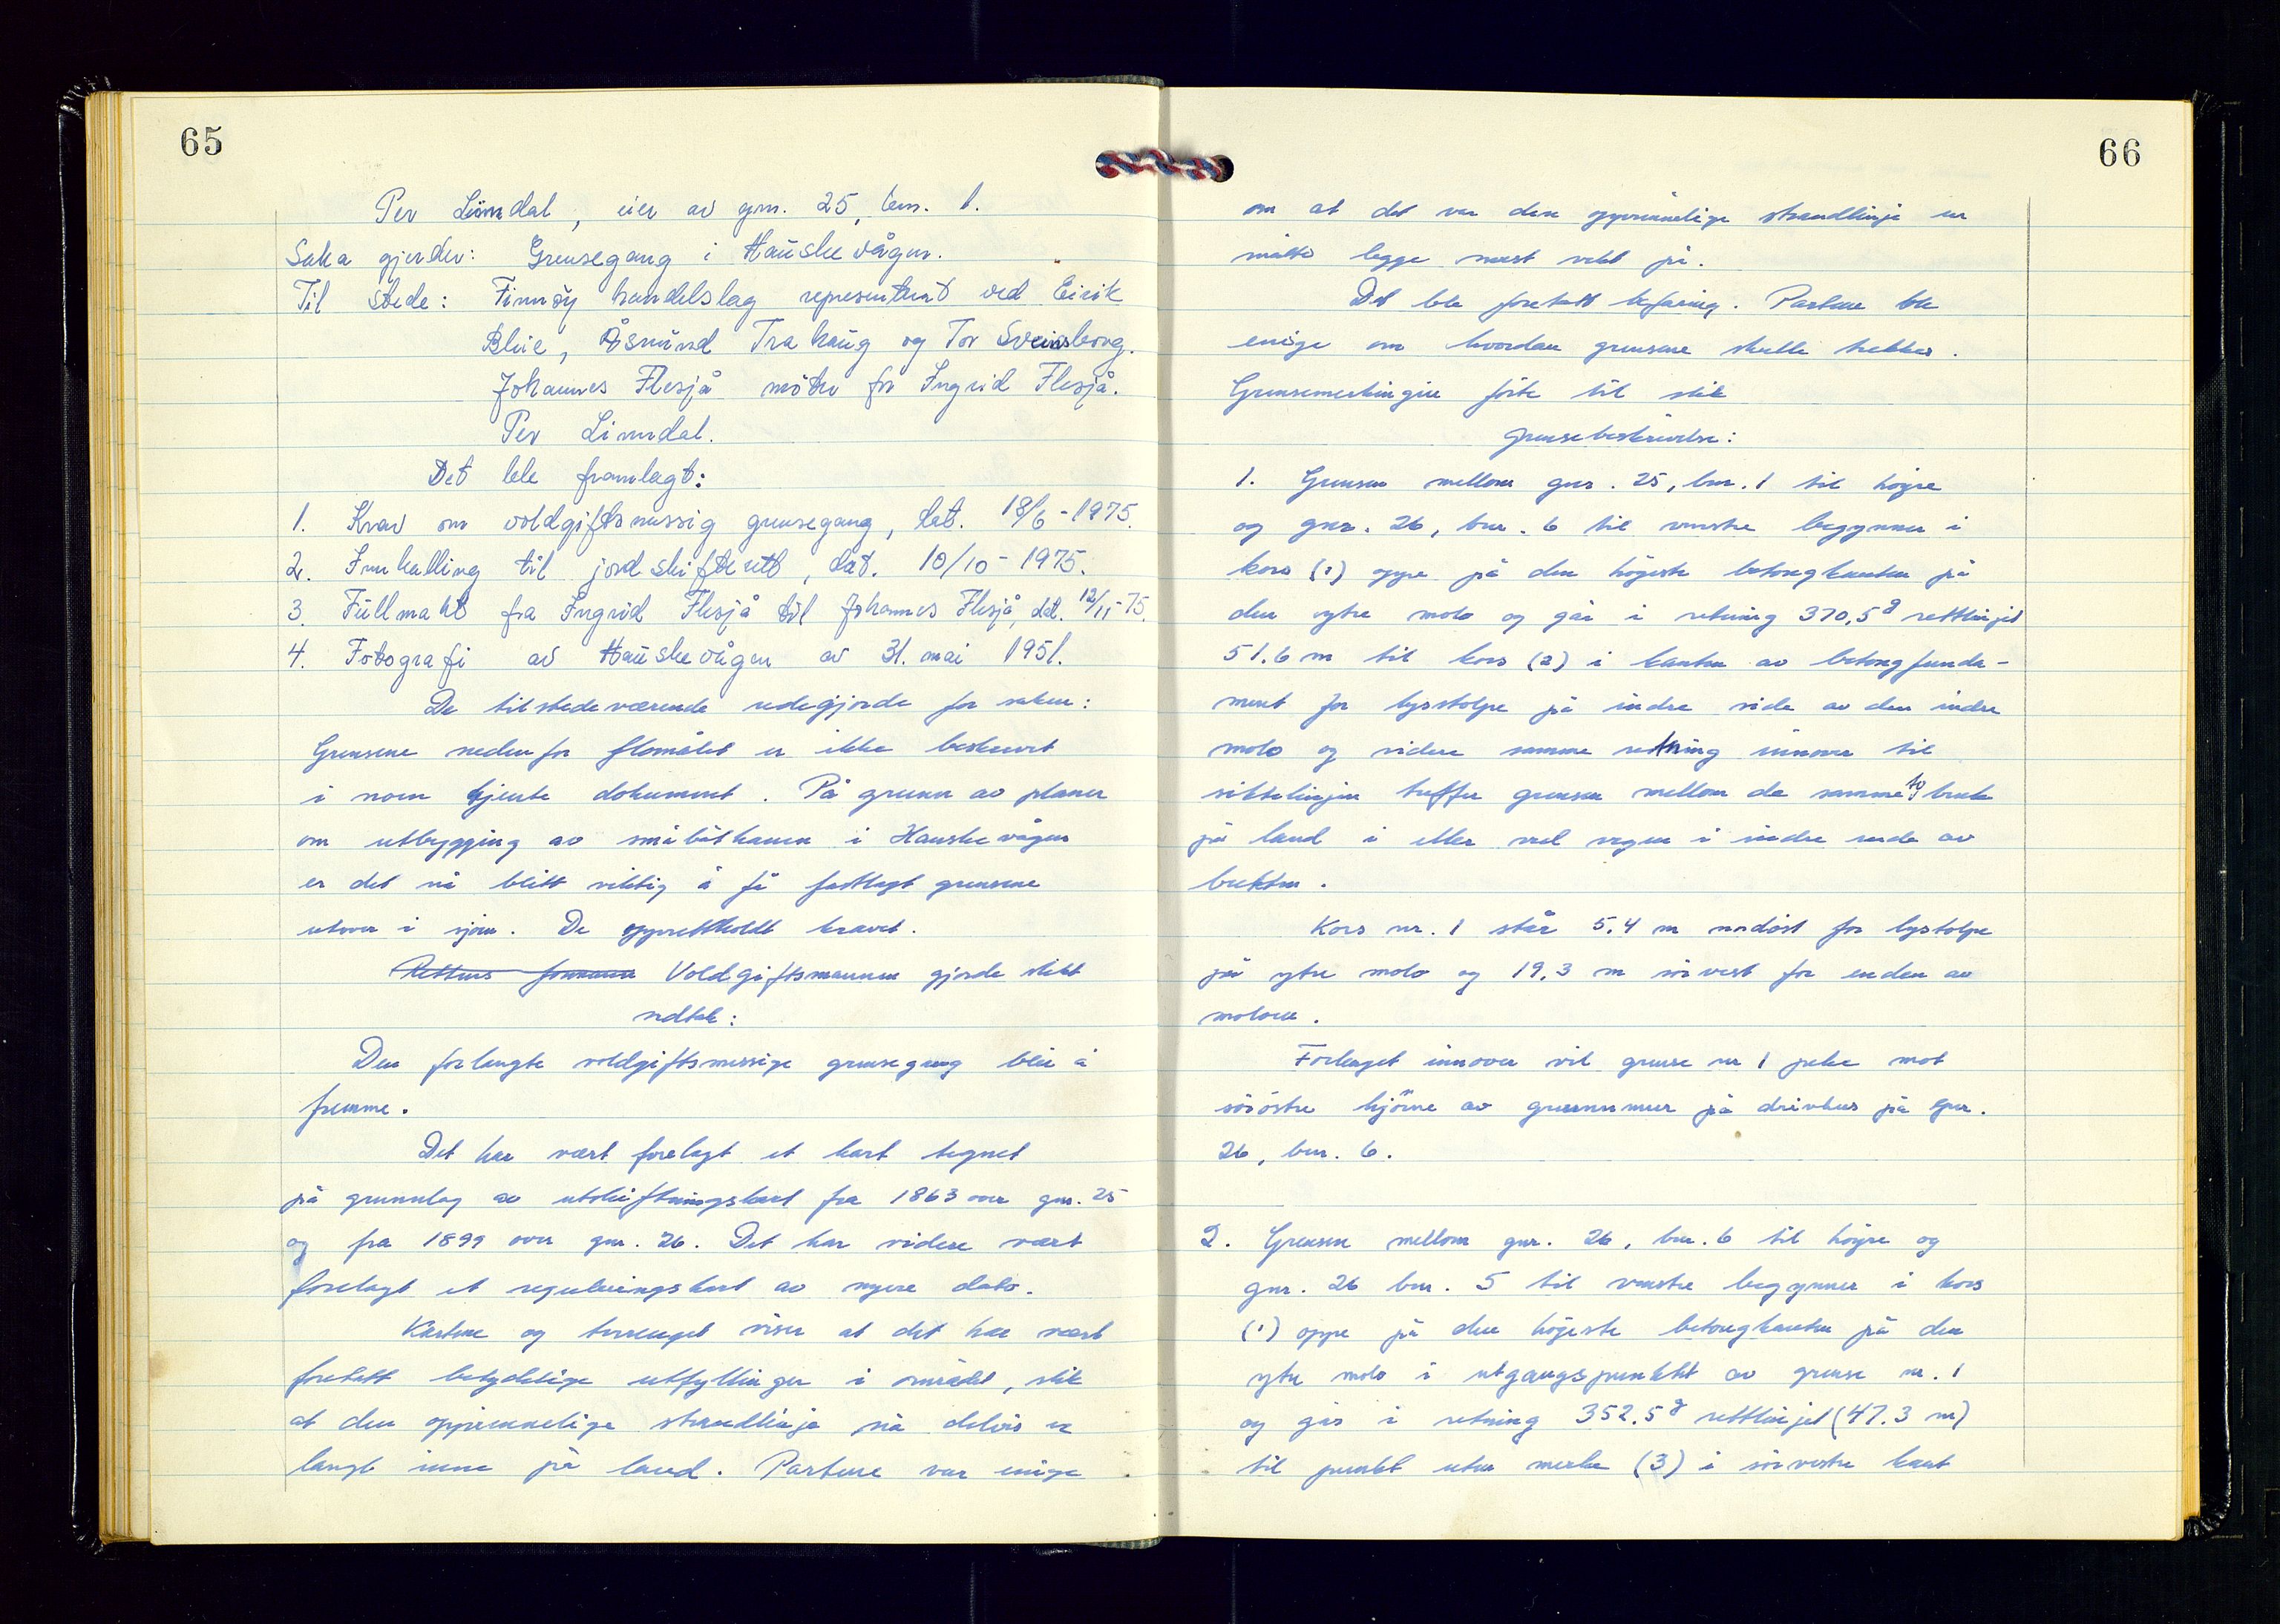 65
Per Limdal, eier av gnr. 25, bnr. 1.
Saka gjender: Grensegang i Hauskevågen.
Til stede: Finnøy handelslag representert ved Eirik
Blie, Åsmund Trahaug og Tor Sveinsborg.
Johannes Flesjå møtte for Ingrid Flesjå.
Per Limdal.
Det ble framlagt:
1. Krav om voldgiftsmessig grensegang, dat. 18/6-1975.
2. Innkalling til jordskifterett, dat. 10/10-1975.
3. Fullmakt fra Ingrid Flesjå til Johannes Flesjå, dat. 12/11-75.
4. Fotografi av Hauskevågen av 31. mai 1951.
De tilstedeværende redegjorde for saken:
Grensene nedenfor flomålet er ikke beskrevet
i noen kjente dokument. På grunn av planer
om utbygging av småbåthavn i Hauskevågen
er det nå blitt viktig å få fastlagt grensene
utover i sjøen. De opprettholdt kravet.
Rettens formann Voldgiftsmannen gjorde slikt
vedtak:
Den forlangte voldgiftsmessige grensegang blir å
fremme.
Det har vært forelagt et kart tegnet
på grunnlag av utskiftningskart fra 1863 over gnr. 25
og fra 1899 over gnr. 26. Det har videre vært
forelagt et reguleringskart av nyere dato.
Kartene og terrenget viser at det har vært
foretatt betydelige utfyllinger i området, slik
at den opprinnelige strandlinje nå delvis er
langt inne på land. Partene var enige
66
om at det var den opprinnelige strandlinje en
måtte legge mest vekt på.
Det ble foretatt befaring. Partene ble
enige om hvordan grensene skulle trekkes.
Grensemerkingen førte til slik
grensebeskrivelse:
1. Grensen mellom gnr. 25, bnr. 1 til høgre
og gnr. 26, bnr. 6 til venstre begynner i
kors (1) oppe på den høgeste betongkanten på
den ytre molo og går i retning 370,5g rettlinjet
51.6 m til kors (2) i kanten av betongfunda-
ment for lysstolpe på indre side av den indre
molo og videre samme retning innover til
siktelinjen treffer grensen mellom de samme to bruk
på land i eller ved vegen i indre ende av
bukten.
Kors nr. 1 står 5.4 m nordøst for lystolpe
på ytre molo og 19.3 m sørvest for enden av
moloen.
Forlenget innover vil grense nr 1 peke mot
sørøstre hjørne av grunnmur på drivhus på gnr.
26, bnr. 6.
2. Grensen mellom gnr. 26, bnr. 6 til høgre og
gnr. 26 bnr. 5 til venstre begynner i kors
(1) oppe på den høgeste betongkanten på den
ytre molo i utgangspunktet av grense nr. 1
og går i retning 352.5g rettlinjet (47.3 m)
til punkt uten merke (3) i sørvestre kant